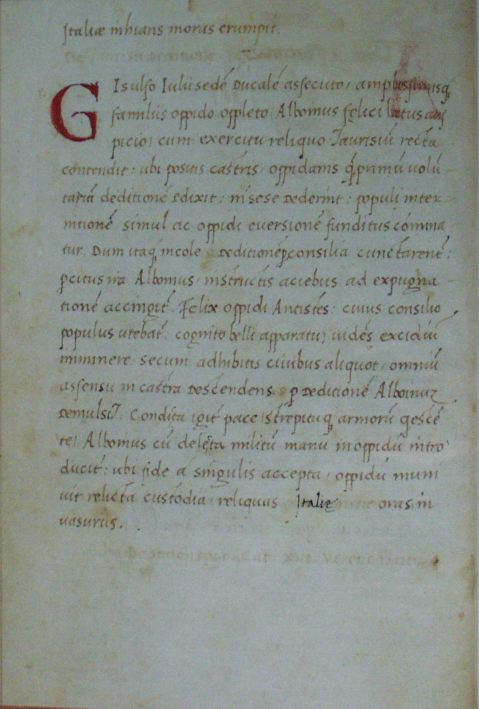 Italiæ inhians moras erumpit.
GIsulfo Iulii sedē Ducalē assecuto, amplissimisq;
familiis oppido oppleto, Alboinus felici lætus aus
picio, cum exercitu reliquo Taurisiū recta
contendit: ubi positis castris, oppidanis q̄primū volū
tariā deditionē edixit: ni sese dederint: populi inter
nitionē simul ac oppidi eversionē funditus cōmina
tur. Dum itaq; incolę, deditionē consilia cunctarent:
percitus ira Alboinus, instructis aciebus ad expugna
tionē accingit. Felix oppidi Antistes: cuius consilio
populus utebat, cognito belli apparatu, vidēs excidiū
imminere, secum adhibitis civibus aliquot, omniū
assensu in castra descendens, p deditionē Alboinū
demulsit. Condita igit pace, strepituq; armorū qesce
te, Alboinus cū delecta militū manu in oppidū intro
ducit: ubi fide a singulis accepta, oppidū muni
vit relicta custodia, reliquas Italię oras in
vasurus.